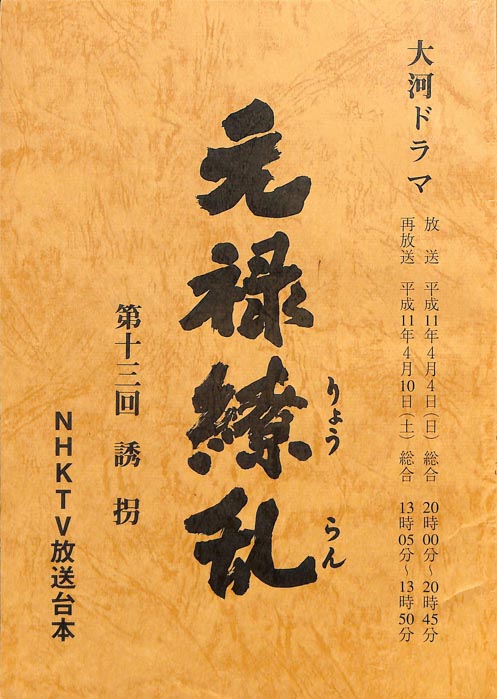 大河ドラマ
放送 平成11年4月4日(日) 総合 20時00分~20時45分
再放送 平成11年4月10日(土) 総合 13時05分~13時50分
元禄繚乱
りょう らん
第十三回 誘拐
NHKTV放送台本